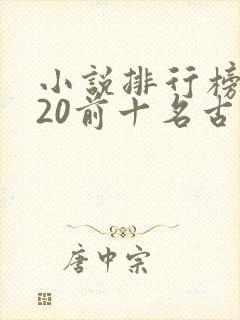 小説排行榜
20前十名古
唐中宗